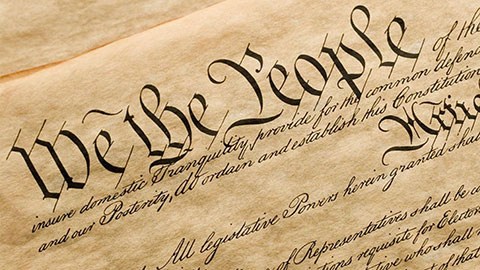 We the People of the
insure domestic Tranquility, provide for the common defence
and our Posterity, do ordain and establish this Constitution
All legislative Powers herein granted shall
of Representatives shall be
requisite for Electors
who shall